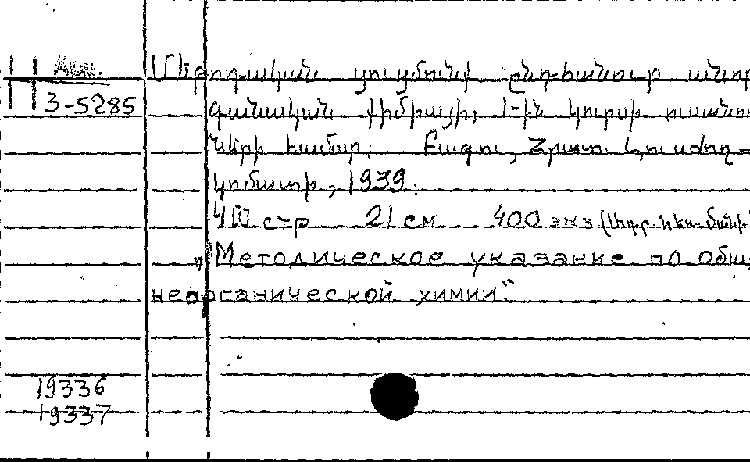 Ադտ.
3-5285
Մեթոդական ցուցմունք ընդհանուր անօր
գանական քիմիայի, 1-ին կուրսի ուսանո
ների համար: Բագու, Հրատ. Լուսժող-
կոմատի, 1939.
40 стр 21 см 400 экз
„Методическое указание по общ
неорганической химии“.
19336
19337